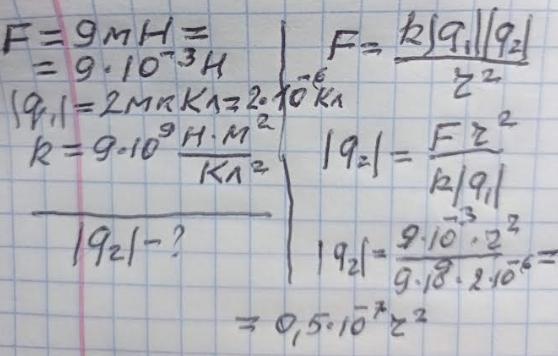 F = 9мН =
= 9·10⁻³Н
|q₁| = 2мкКл = 2·10⁻⁶Кл
k = 9·10⁹ Н·м²/Кл²
|q₂| - ?
F = k|q₁||q₂|/r²
|q₂| = Fr²/k|q₁|
|q₂| = 9·10⁻³·r²/9·10⁹·2·10⁻⁶ =
= 0,5·10⁻⁷r²